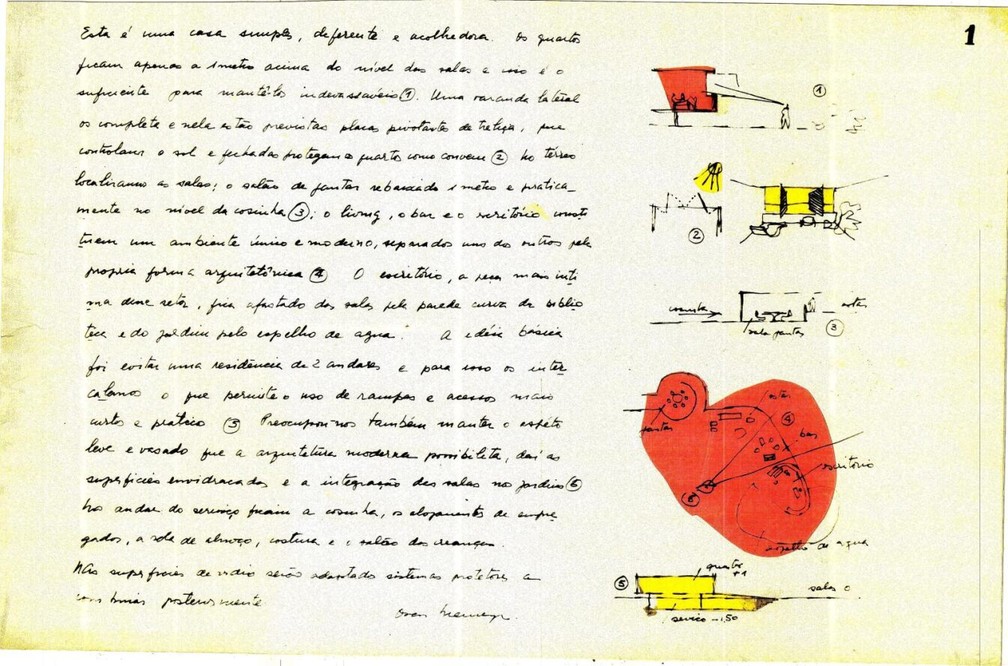 1
Esta é uma casa simples, diferente e acolhedora. Os quartos
ficam apenas a 1 metro acima do nível das salas e isso é o
suficiente para mantê-los indevassáveis ①. Uma varanda lateral
os completa e nela estão previstas placas pivotantes de treliça, que
controlam o sol e fechadas protegem o quarto como convem ② No térreo
localizamos as salas; o salão de jantar rebaixado 1 metro e pratica-
mente no nivel da cosinha ③; o living, o bar e o escritório consti
tuem um ambiente único e moderno, separados uns dos outros pela
propria forma arquitetônica ④ O escritório, a peça mais inti
ma desse setor, fica afastado das salas pela parede curva da biblio
teca e do jardim pelo espelho de agua. A idéia básica
foi evitar uma residência de 2 andares e para isso os inter
calamos o que permite o uso de rampas e acessos mais
curtos e pratico ⑤ Preocupou-nos também manter o aspéto
leve e vasado que a arquitetura moderna possibilita, daí as
superficies envidraçadas e a integração das salas no jardim ⑥
No andar do serviço ficam a cosinha, os alojamentos de empre
gados, a sala de almoço, costura e o salão das crianças.
Nas superficies de vidro serão adaptado sistemas protetores a
combinar posteriormente
Oscar Niemeyer
①
②
cosinha
estar
sala jantar
③
estar
④
bar
jantar
escritório
⑥
espelho de agua
quartos
+1
⑤
salas 0
serviço -1,50